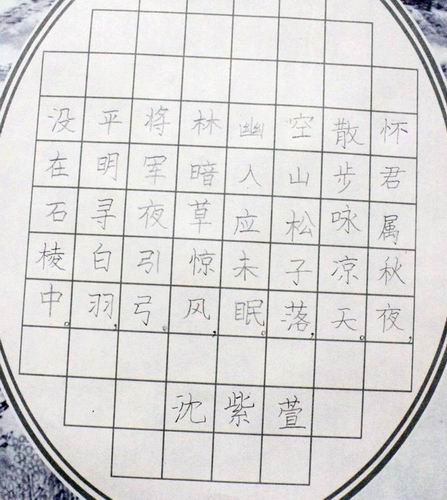 怀君属秋夜，
散步咏凉天。
空山松子落，
幽人应未眠。
林暗草惊风，
将军夜引弓。
平明寻白羽，
没在石棱中。
沈紫萱